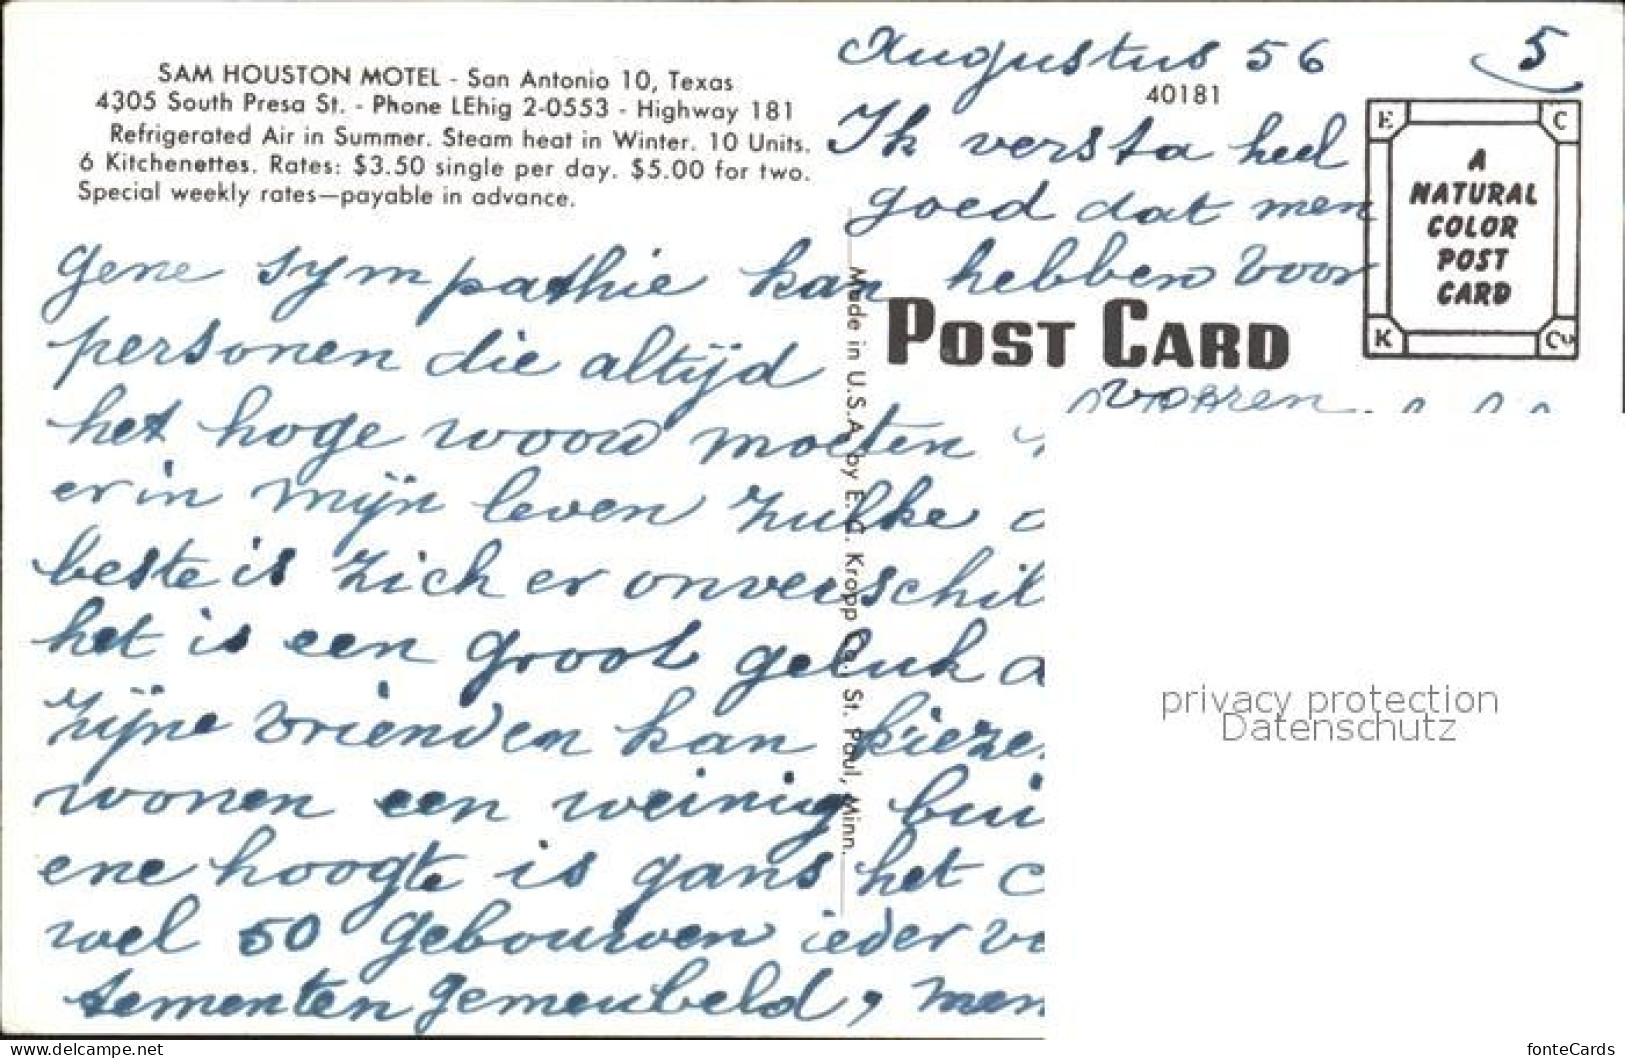 SAM HOUSTON MOTEL - San Antonio 10, Texas
4305 South Presa St. - Phone LEhig 2-0553 - Highway 181
Refrigerated Air in Summer. Steam heat in Winter. 10 Units.
6 Kitchenettes. Rates: $3.50 single per day. $5.00 for two.
Special weekly rates—payable in advance.
Augustus 56
5
40181
Ik versta heel
goed dat men
gene sympathie kan hebben voor
personen die altijd
het hoge woord moeten
voeren
er in mijn leven zulke
beste is zich er onverschil
het is een groot geluk
zijne vrienden kan kieze
wonen een weinig bui
ene hoogte is gans het
wel 50 gebouwen ieder
tementen gemeubeld, men
Made in U.S.A. by E. C. Kropp Co. St. Paul, Minn.
POST CARD
E C
K Co
A
NATURAL
COLOR
POST
CARD
privacy protection
Datenschutz
www.delcampe.net
fonteCards